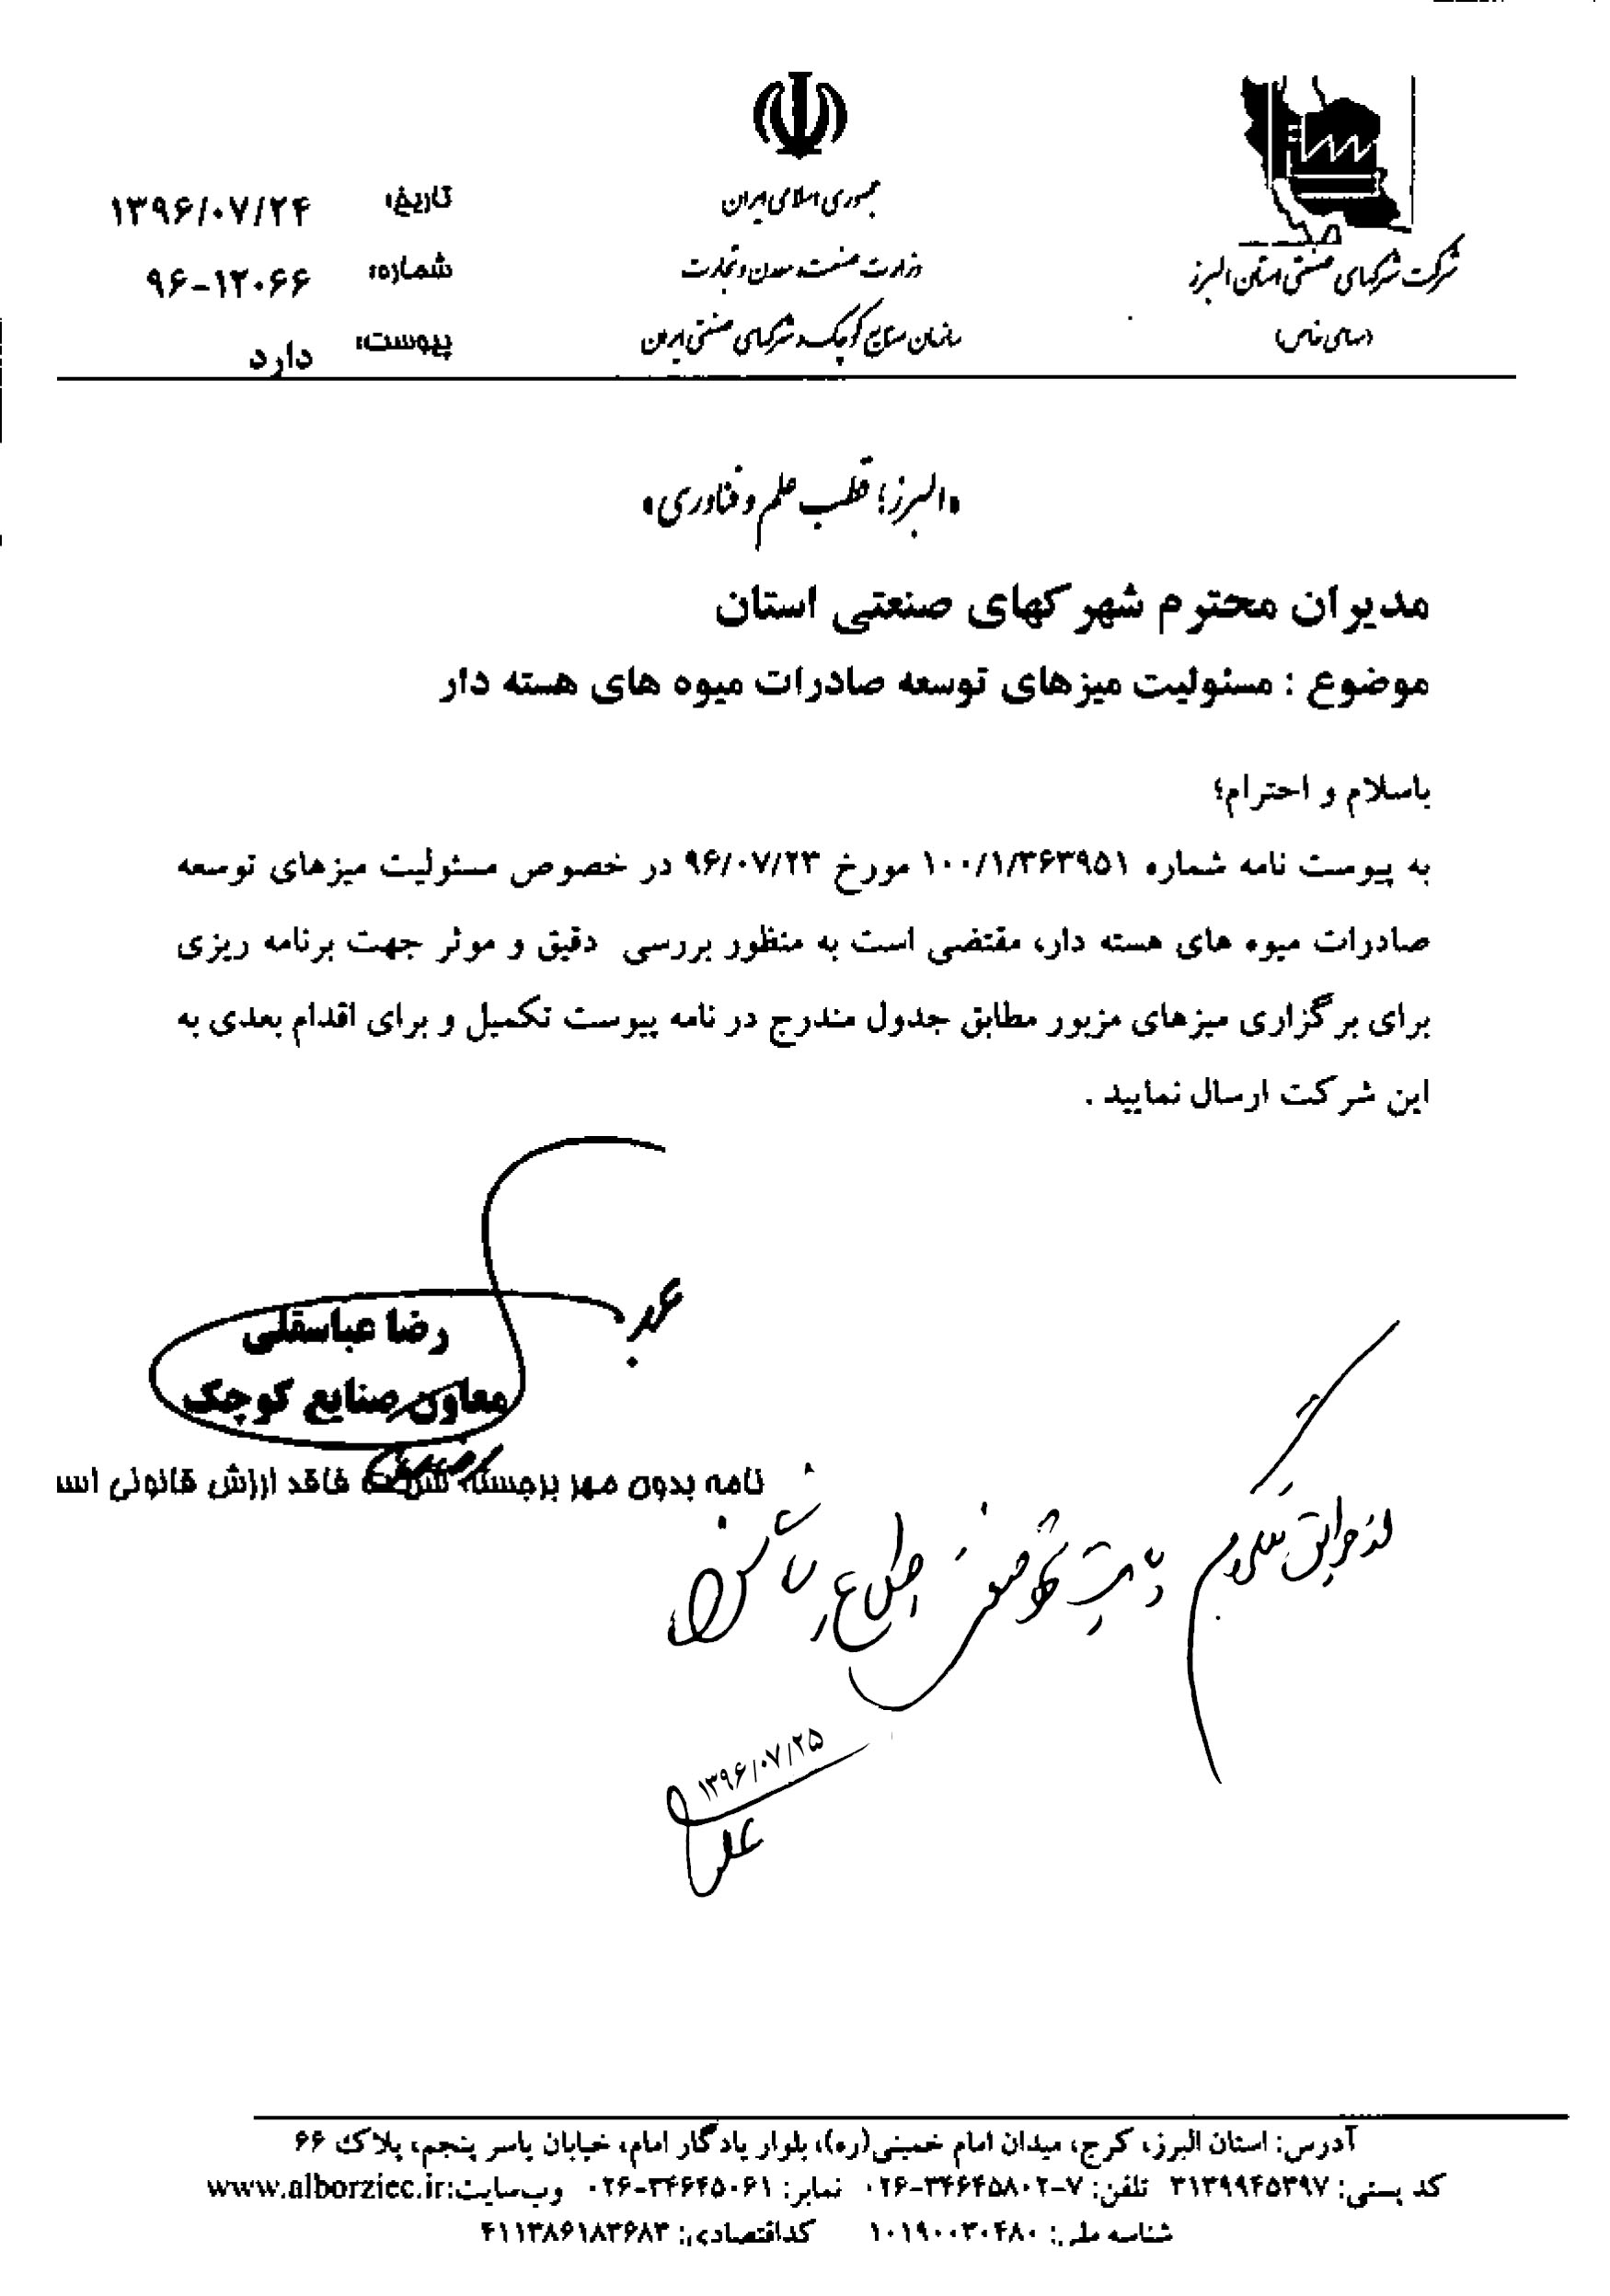 شرکت شهرکهای صنعتی استان البرز
(سهامی خاص)
جمهوری اسلامی ایران
وزارت صنعت، معدن و تجارت
سازمان صنایع کوچک و شهرکهای صنعتی ایران
تاریخ: ۱۳۹۶/۰۷/۲۴
شماره: ۹۶-۱۲۰۶۶
پیوست: دارد
«البرز؛ قطب علم و فناوری»
مدیران محترم شهرکهای صنعتی استان
موضوع : مسئولیت میزهای توسعه صادرات میوه های هسته دار
باسلام و احترام؛
به پیوست نامه شماره ۱۰۰/۱/۳۶۳۹۵۱ مورخ ۹۶/۰۷/۲۳ در خصوص مسئولیت میزهای توسعه
صادرات میوه های هسته دار، مقتضی است به منظور بررسی دقیق و موثر جهت برنامه ریزی
برای برگزاری میزهای مزبور مطابق جدول مندرج در نامه پیوست تکمیل و برای اقدام بعدی به
این شرکت ارسال نمایید .
رضا عباسقلی
معاون صنایع کوچک
نامه بدون مهر برجسته شرکت فاقد ارزش قانونی اس
۱۳۹۶/۰۷/۲۵
آدرس: استان البرز، کرج، میدان امام خمینی(ره)، بلوار یادگار امام، خیابان یاسر پنجم، پلاک ۶۶
کد پستی: ۳۱۳۹۹۴۵۳۹۷ تلفن: ۷-۳۴۶۴۵۸۰۲-۰۲۶ نمابر: ۳۴۶۴۵۰۶۱-۰۲۶ وب‌سایت:www.alborziec.ir
شناسه ملی: ۱۰۱۹۰۰۳۰۴۸۰ کداقتصادی: ۴۱۱۳۸۶۱۸۳۶۸۳